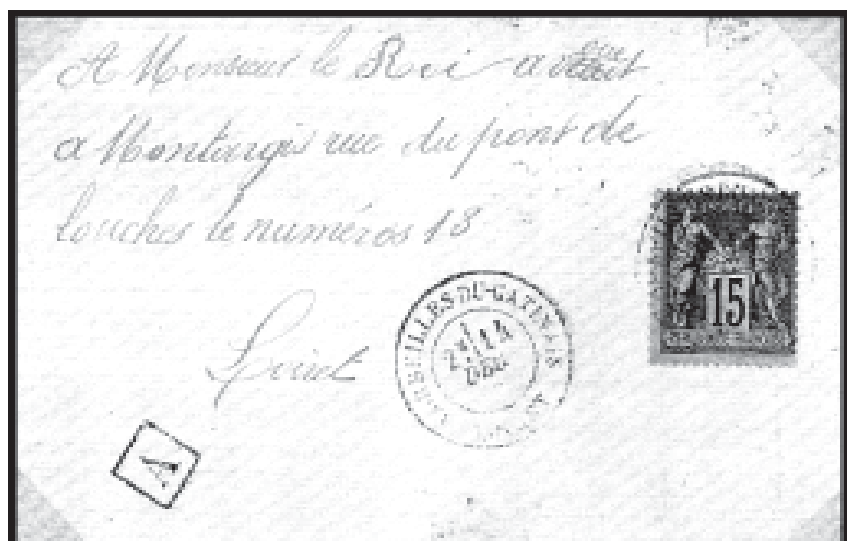 A Monsieur le Roi avoué
a Montargis rue du pont de
louches le numéros 18
Loiret
CORBEILLES-DU-GATINAIS
14
DEC
15
A